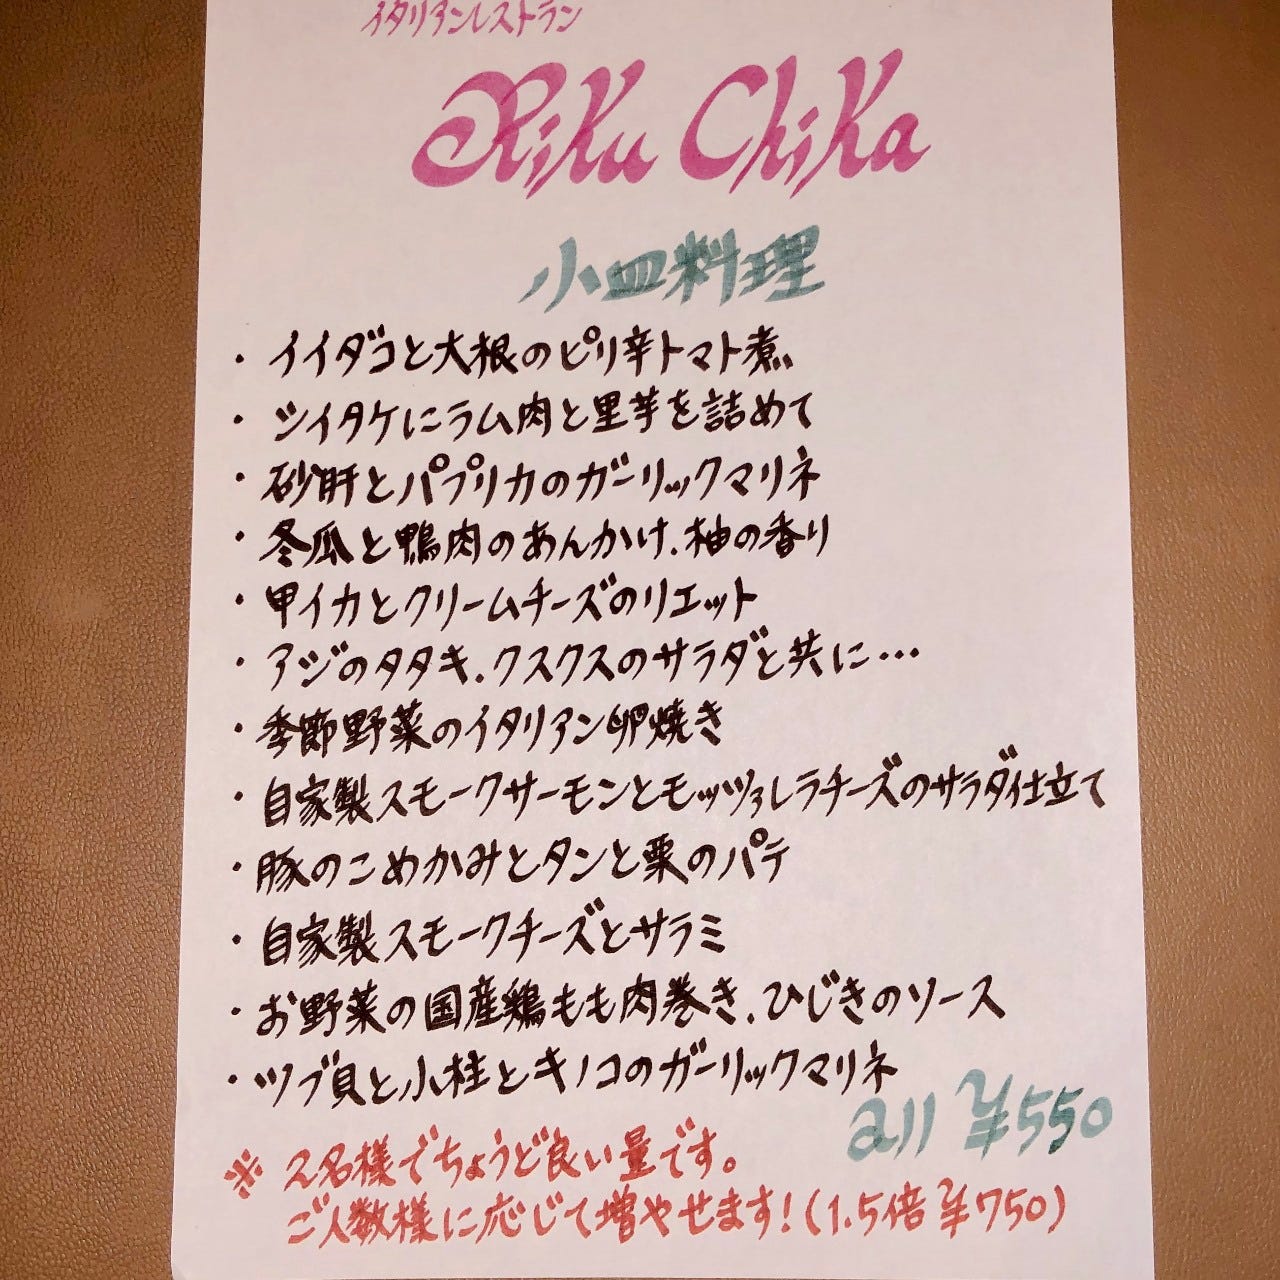 イタリアンレストラン
RiKu ChiKa
小皿料理
・イイダコと大根のピリ辛トマト煮
・ツイタケにラム肉と里芋を詰めて
・砂肝とパプリカのガーリックマリネ
・冬瓜と鴨肉のあんかけ、柚の香り
・甲イカとクリームチーズのリエット
・アジのタタキ、クスクスのサラダと共に…
・季節野菜のイタリアン卵焼き
・自家製スモークサーモンとモッツァレラチーズのサラダ仕立て
・豚のこめかみとタンと栗のパテ
・自家製スモークチーズとサラミ
・お野菜の国産鶏もも肉巻き、ひじきのソース
・ツブ貝と小柱とキノコのガーリックマリネ
all ¥550
※ 2名様でちょうど良い量です。
ご人数様に応じて増やせます!(1.5倍 ¥750)